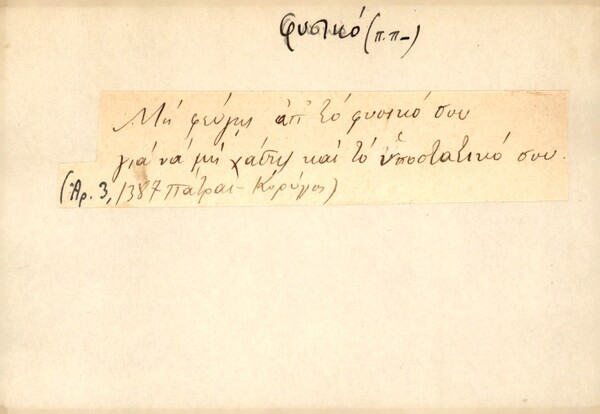 φυσικό (π.π-)
Μή φεύγης ἀπ' τό φυσικό σου
γιά νά μή χάσης καί τό ὑποστατικό σου.
(Ἀρ. 3, 1387 Πάτραι - Κορύλος)